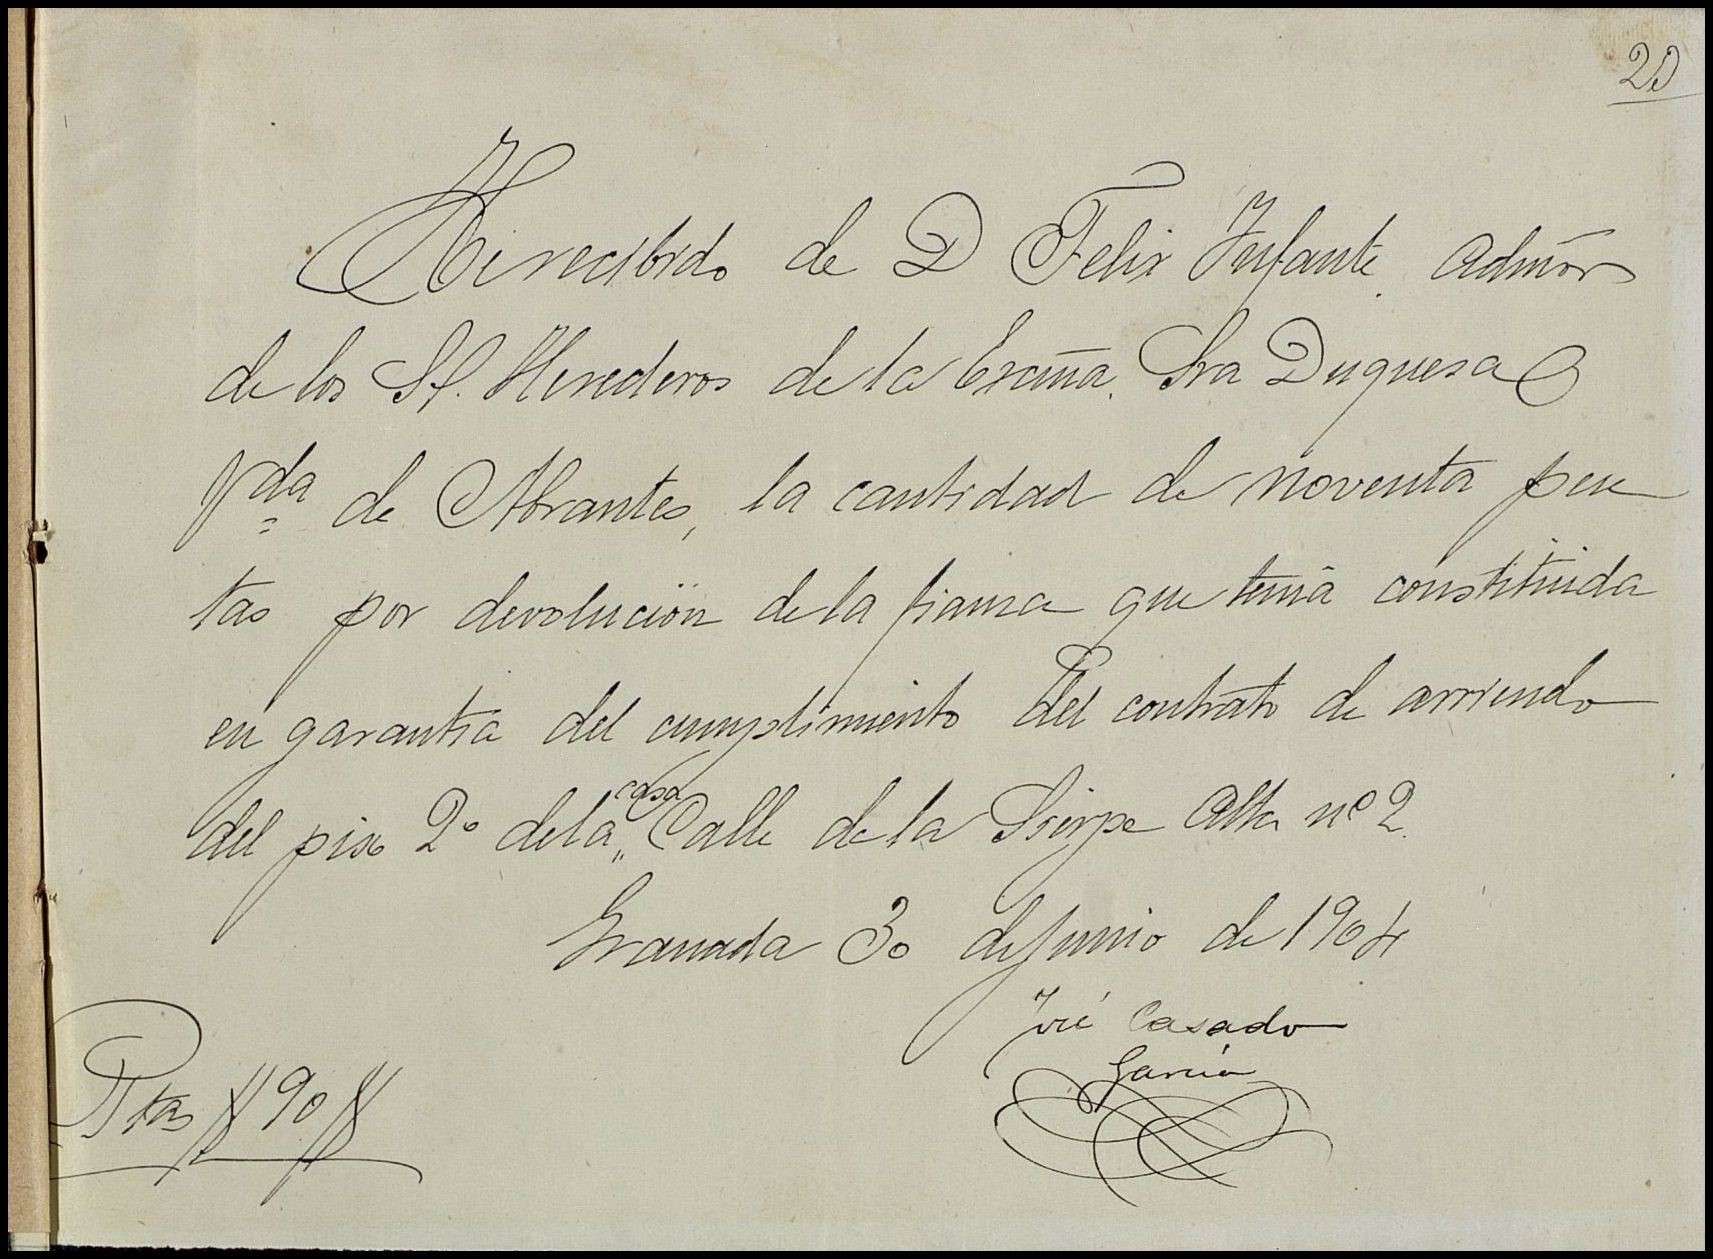 20
He recibido de D Felix Infante Admōr
de los Sś. Herederos de la Excm̄a. Sra Duquesa
Vda de Abrantes, la cantidad de noventa pese
tas por devolución de la fianza que tenía constituida
en garantia del cumplimiento del contrato de arriendo
del piso 2º de la casa Calle de la Sierpe Alta nº 2.
Granada 30 de Junio de 1904
José Casado
García
Ptas 90